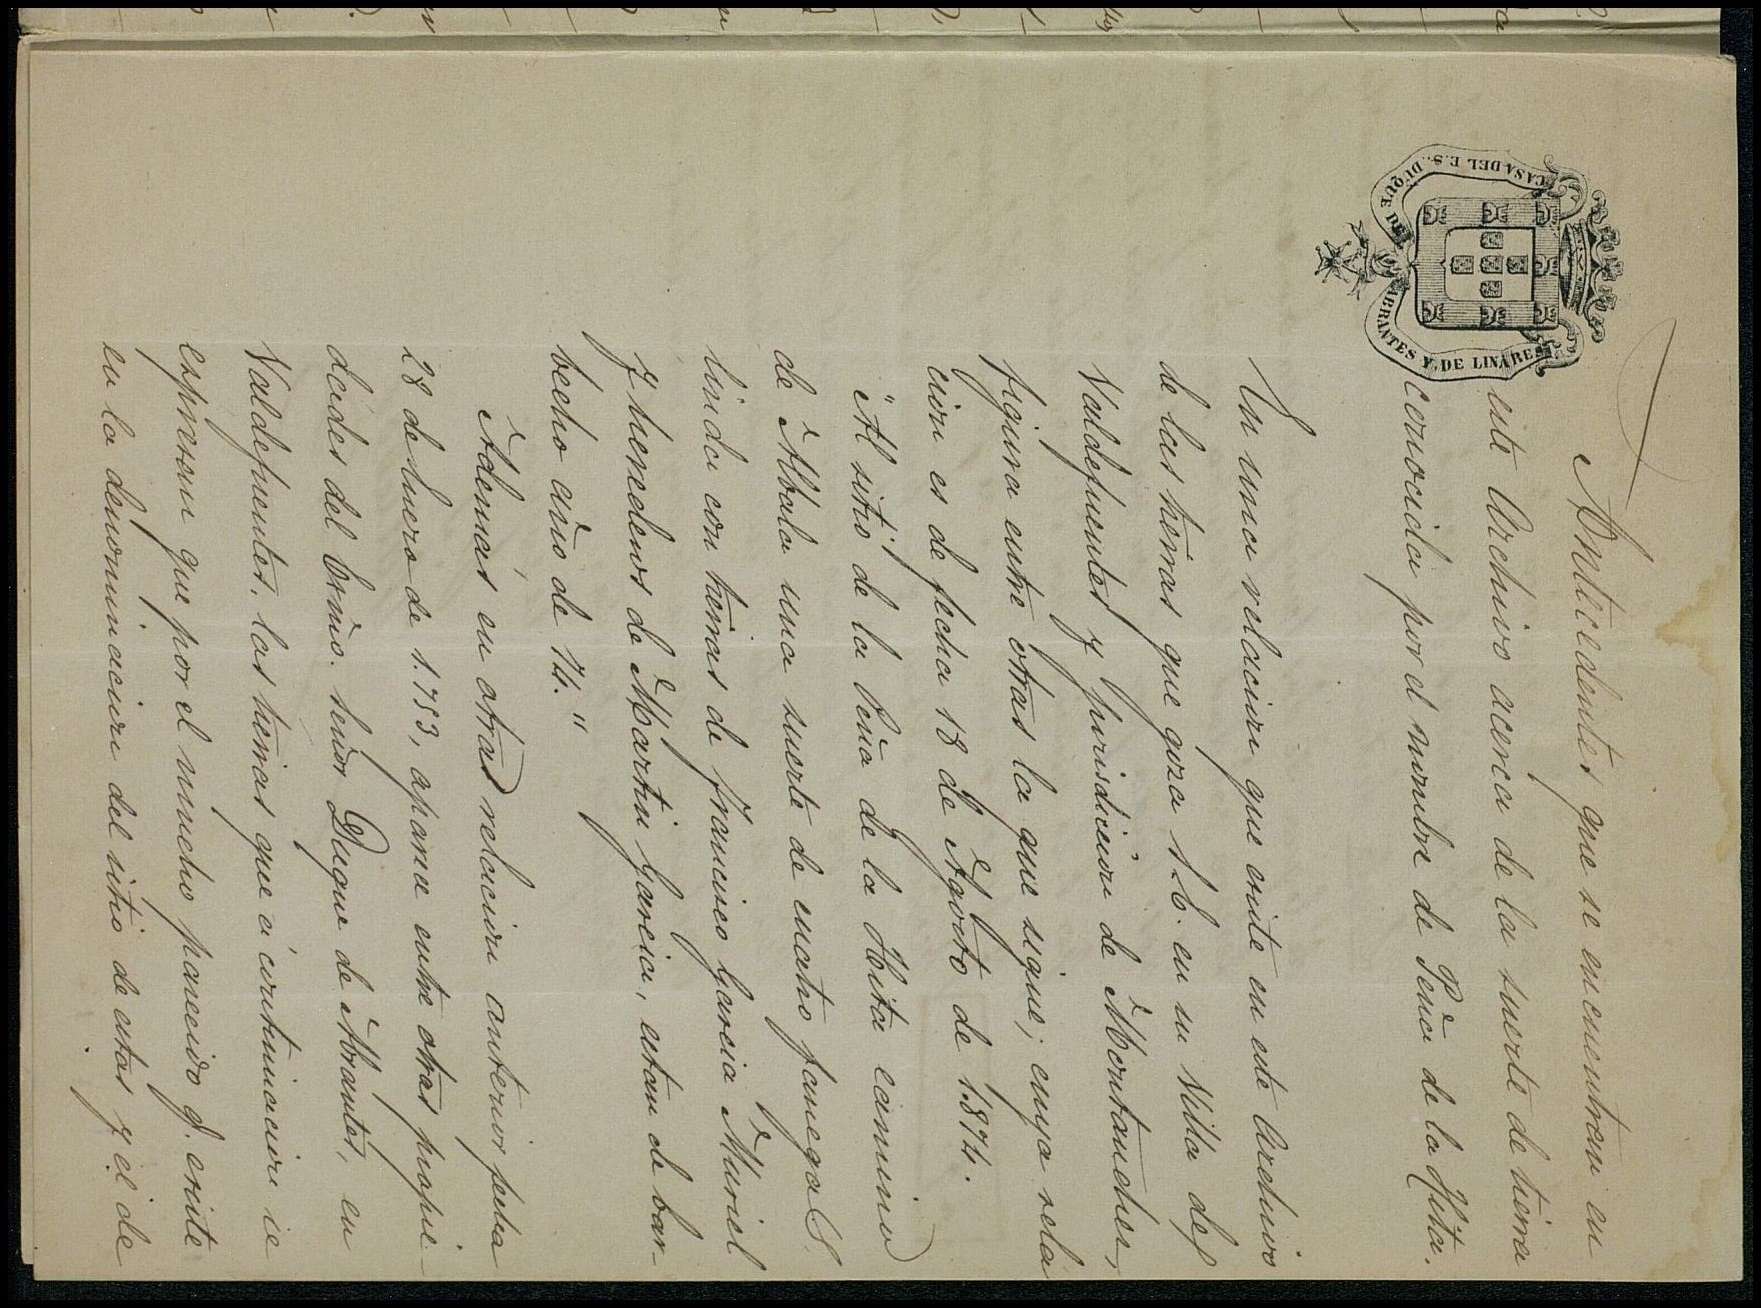 CASA DEL E.S. DUQUE DE ABRANTES Y DE LINARES
Antecedentes que se encuentran en
este Archivo acerca de la suerte de tierra
conocida por el nombre de Peña de la Hita.
En una relacion que existe en este Archivo
de las tierras que goza S.E. en su Villa de
Valdefuentes y jurisdiccion de Montanches,
figura entre otras la que sigue; cuya rela
cion es de fecha 18 de Agosto de 1874.
"Al sitio de la Peña de la Hita camino
de Albala una suerte de cuatro fanegas
linda con tierras de Francisco Garcia Muriel
y herederos de Martin Garcia, estan de bar-
becho año de 74."
Además, en otra relacion anterior fecha
28 de Enero de 1.753, aparece entre otras propie-
dades del Exmo. Señor Duque de Abrantes, en
Valdefuentes, las tierras que á continuacion se
expresan que por el mucho parecido q. existe
en la denominacion del sitio de estas y el de